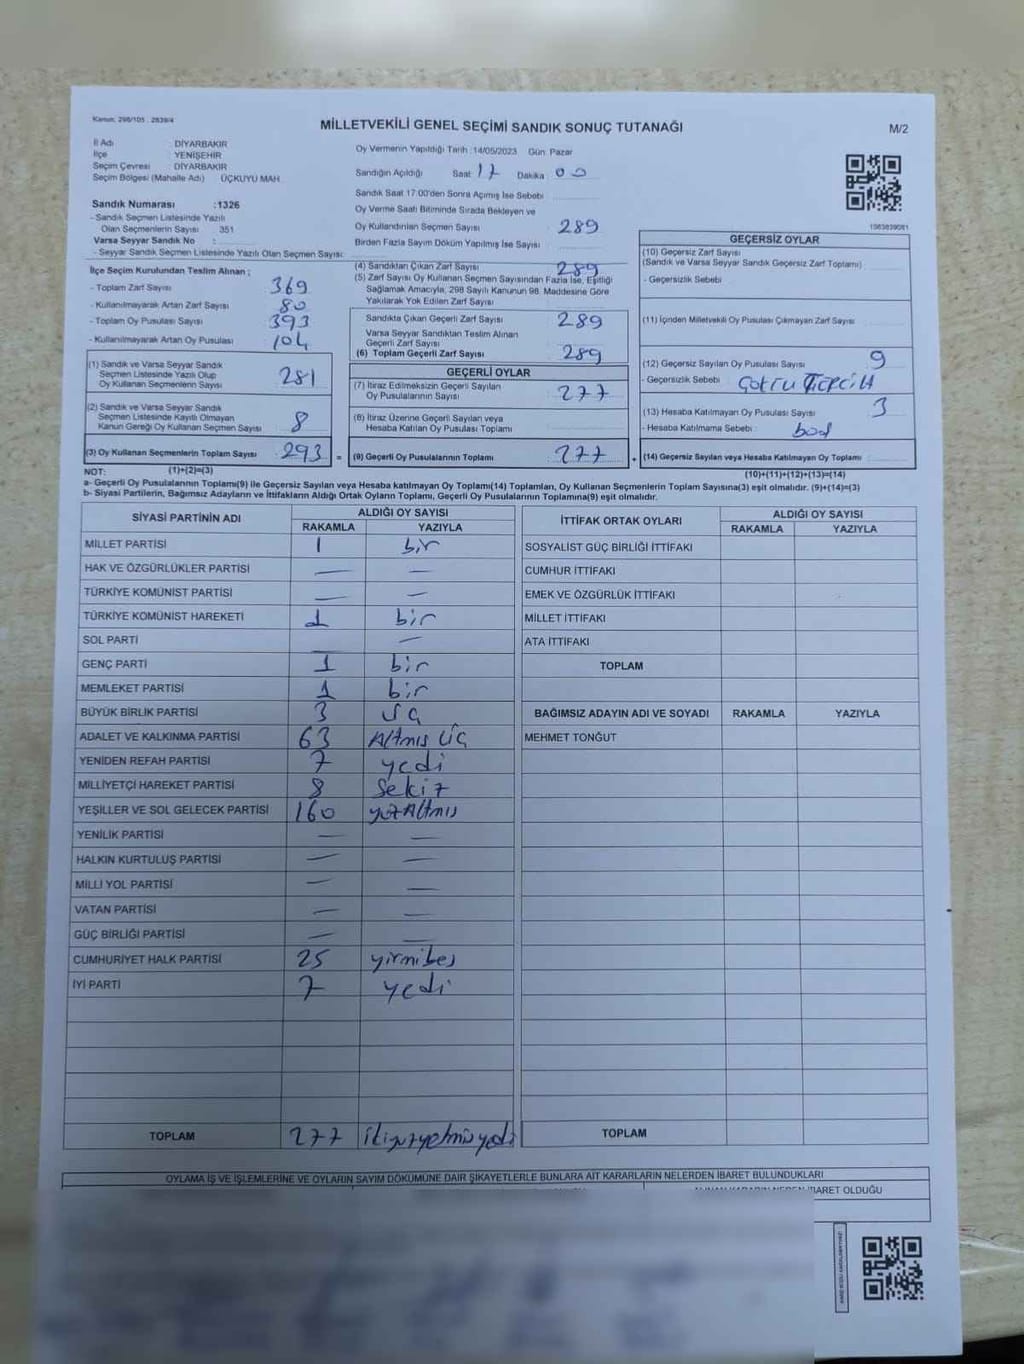 Kanun: 298/105 : 2839/4
MİLLETVEKİLİ GENEL SEÇİMİ SANDIK SONUÇ TUTANAĞI
M/2
İl Adı : DİYARBAKIR
İlçe : YENİŞEHİR
Seçim Çevresi : DİYARBAKIR
Seçim Bölgesi (Mahalle Adı) ÜÇKUYU MAH.
Sandık Numarası :1326
- Sandık Seçmen Listesinde Yazılı
Olan Seçmenlerin Sayısı 351
Varsa Seyyar Sandık No :
- Seyyar Sandık Seçmen Listesinde Yazılı Olan Seçmen Sayısı:
Oy Vermenin Yapıldığı Tarih :14/05/2023 Gün: Pazar
Sandığın Açıldığı Saat 17 Dakika 00
Sandık Saat 17:00'den Sonra Açılmış İse Sebebi :
Oy Verme Saati Bitiminde Sırada Bekleyen ve
Oy Kullandırılan Seçmen Sayısı 289
Birden Fazla Sayım Döküm Yapılmış İse Sayısı :
İlçe Seçim Kurulundan Teslim Alınan ;
- Toplam Zarf Sayısı 369
- Kullanılmayarak Artan Zarf Sayısı 80
- Toplam Oy Pusulası Sayısı 393
- Kullanılmayarak Artan Oy Pusulası 104
(1) Sandık ve Varsa Seyyar Sandık
Seçmen Listesinde Yazılı Olup
Oy Kullanan Seçmenlerin Sayısı 281
(2) Sandık ve Varsa Seyyar Sandık
Seçmen Listesinde Kayıtlı Olmayan
Kanun Gereği Oy Kullanan Seçmen Sayısı 8
(3) Oy Kullanan Seçmenlerin Toplam Sayısı 293 =
(4) Sandıktan Çıkan Zarf Sayısı 289
(5) Zarf Sayısı Oy Kullanan Seçmen Sayısından Fazla İse, Eşitliği
Sağlamak Amacıyla, 298 Sayılı Kanunun 98. Maddesine Göre
Yakılarak Yok Edilen Zarf Sayısı
Sandıkta Çıkan Geçerli Zarf Sayısı 289
Varsa Seyyar Sandıktan Teslim Alınan
Geçerli Zarf Sayısı
(6) Toplam Geçerli Zarf Sayısı 289
GEÇERLİ OYLAR
(7) İtiraz Edilmeksizin Geçerli Sayılan
Oy Pusulalarının Sayısı 277
(8) İtiraz Üzerine Geçerli Sayılan veya
Hesaba Katılan Oy Pusulası Toplamı
(9) Geçerli Oy Pusulalarının Toplamı 277 +
1583839081
GEÇERSİZ OYLAR
(10) Geçersiz Zarf Sayısı
(Sandık ve Varsa Seyyar Sandık Geçersiz Zarf Toplamı)
- Geçersizlik Sebebi
(11) İçinden Milletvekili Oy Pusulası Çıkmayan Zarf Sayısı
(12) Geçersiz Sayılan Oy Pusulası Sayısı 9
- Geçersizlik Sebebi :
(13) Hesaba Katılmayan Oy Pusulası Sayısı 3
- Hesaba Katılmama Sebebi : boş
(14) Geçersiz Sayılan veya Hesaba Katılmayan Oy Toplamı
NOT: (1)+(2)=(3) (10)+(11)+(12)+(13)=(14)
a- Geçerli Oy Pusulalarının Toplamı(9) ile Geçersiz Sayılan veya Hesaba katılmayan Oy Toplamı(14) Toplamları, Oy Kullanan Seçmenlerin Toplam Sayısına(3) eşit olmalıdır. (9)+(14)=(3)
b- Siyasi Partilerin, Bağımsız Adayların ve İttifakların Aldığı Ortak Oyların Toplamı, Geçerli Oy Pusulalarının Toplamına(9) eşit olmalıdır.
SİYASİ PARTİNİN ADI ALDIĞI OY SAYISI
RAKAMLA YAZIYLA
MİLLET PARTİSİ 1 bir
HAK VE ÖZGÜRLÜKLER PARTİSİ — —
TÜRKİYE KOMÜNİST PARTİSİ — —
TÜRKİYE KOMÜNİST HAREKETİ 1 bir
SOL PARTİ — —
GENÇ PARTİ 1 bir
MEMLEKET PARTİSİ 1 bir
BÜYÜK BİRLİK PARTİSİ 3 üç
ADALET VE KALKINMA PARTİSİ 63 Altmış üç
YENİDEN REFAH PARTİSİ 7 yedi
MİLLİYETÇİ HAREKET PARTİSİ 8 Sekiz
YEŞİLLER VE SOL GELECEK PARTİSİ 160 yüzAltmış
YENİLİK PARTİSİ — —
HALKIN KURTULUŞ PARTİSİ — —
MİLLİ YOL PARTİSİ — —
VATAN PARTİSİ — —
GÜÇ BİRLİĞİ PARTİSİ — —
CUMHURİYET HALK PARTİSİ 25 yirmibeş
İYİ PARTİ 7 yedi
TOPLAM 277 ikiyüzyetmişyedi
İTTİFAK ORTAK OYLARI ALDIĞI OY SAYISI
RAKAMLA YAZIYLA
SOSYALİST GÜÇ BİRLİĞİ İTTİFAKI
CUMHUR İTTİFAKI
EMEK VE ÖZGÜRLÜK İTTİFAKI
MİLLET İTTİFAKI
ATA İTTİFAKI
TOPLAM
BAĞIMSIZ ADAYIN ADI VE SOYADI RAKAMLA YAZIYLA
MEHMET TONĞUT
TOPLAM
OYLAMA İŞ VE İŞLEMLERİNE VE OYLARIN SAYIM DÖKÜMÜNE DAİR ŞİKAYETLERLE BUNLARA AİT KARARLARIN NELERDEN İBARET BULUNDUKLARI
İBARET OLDUĞU